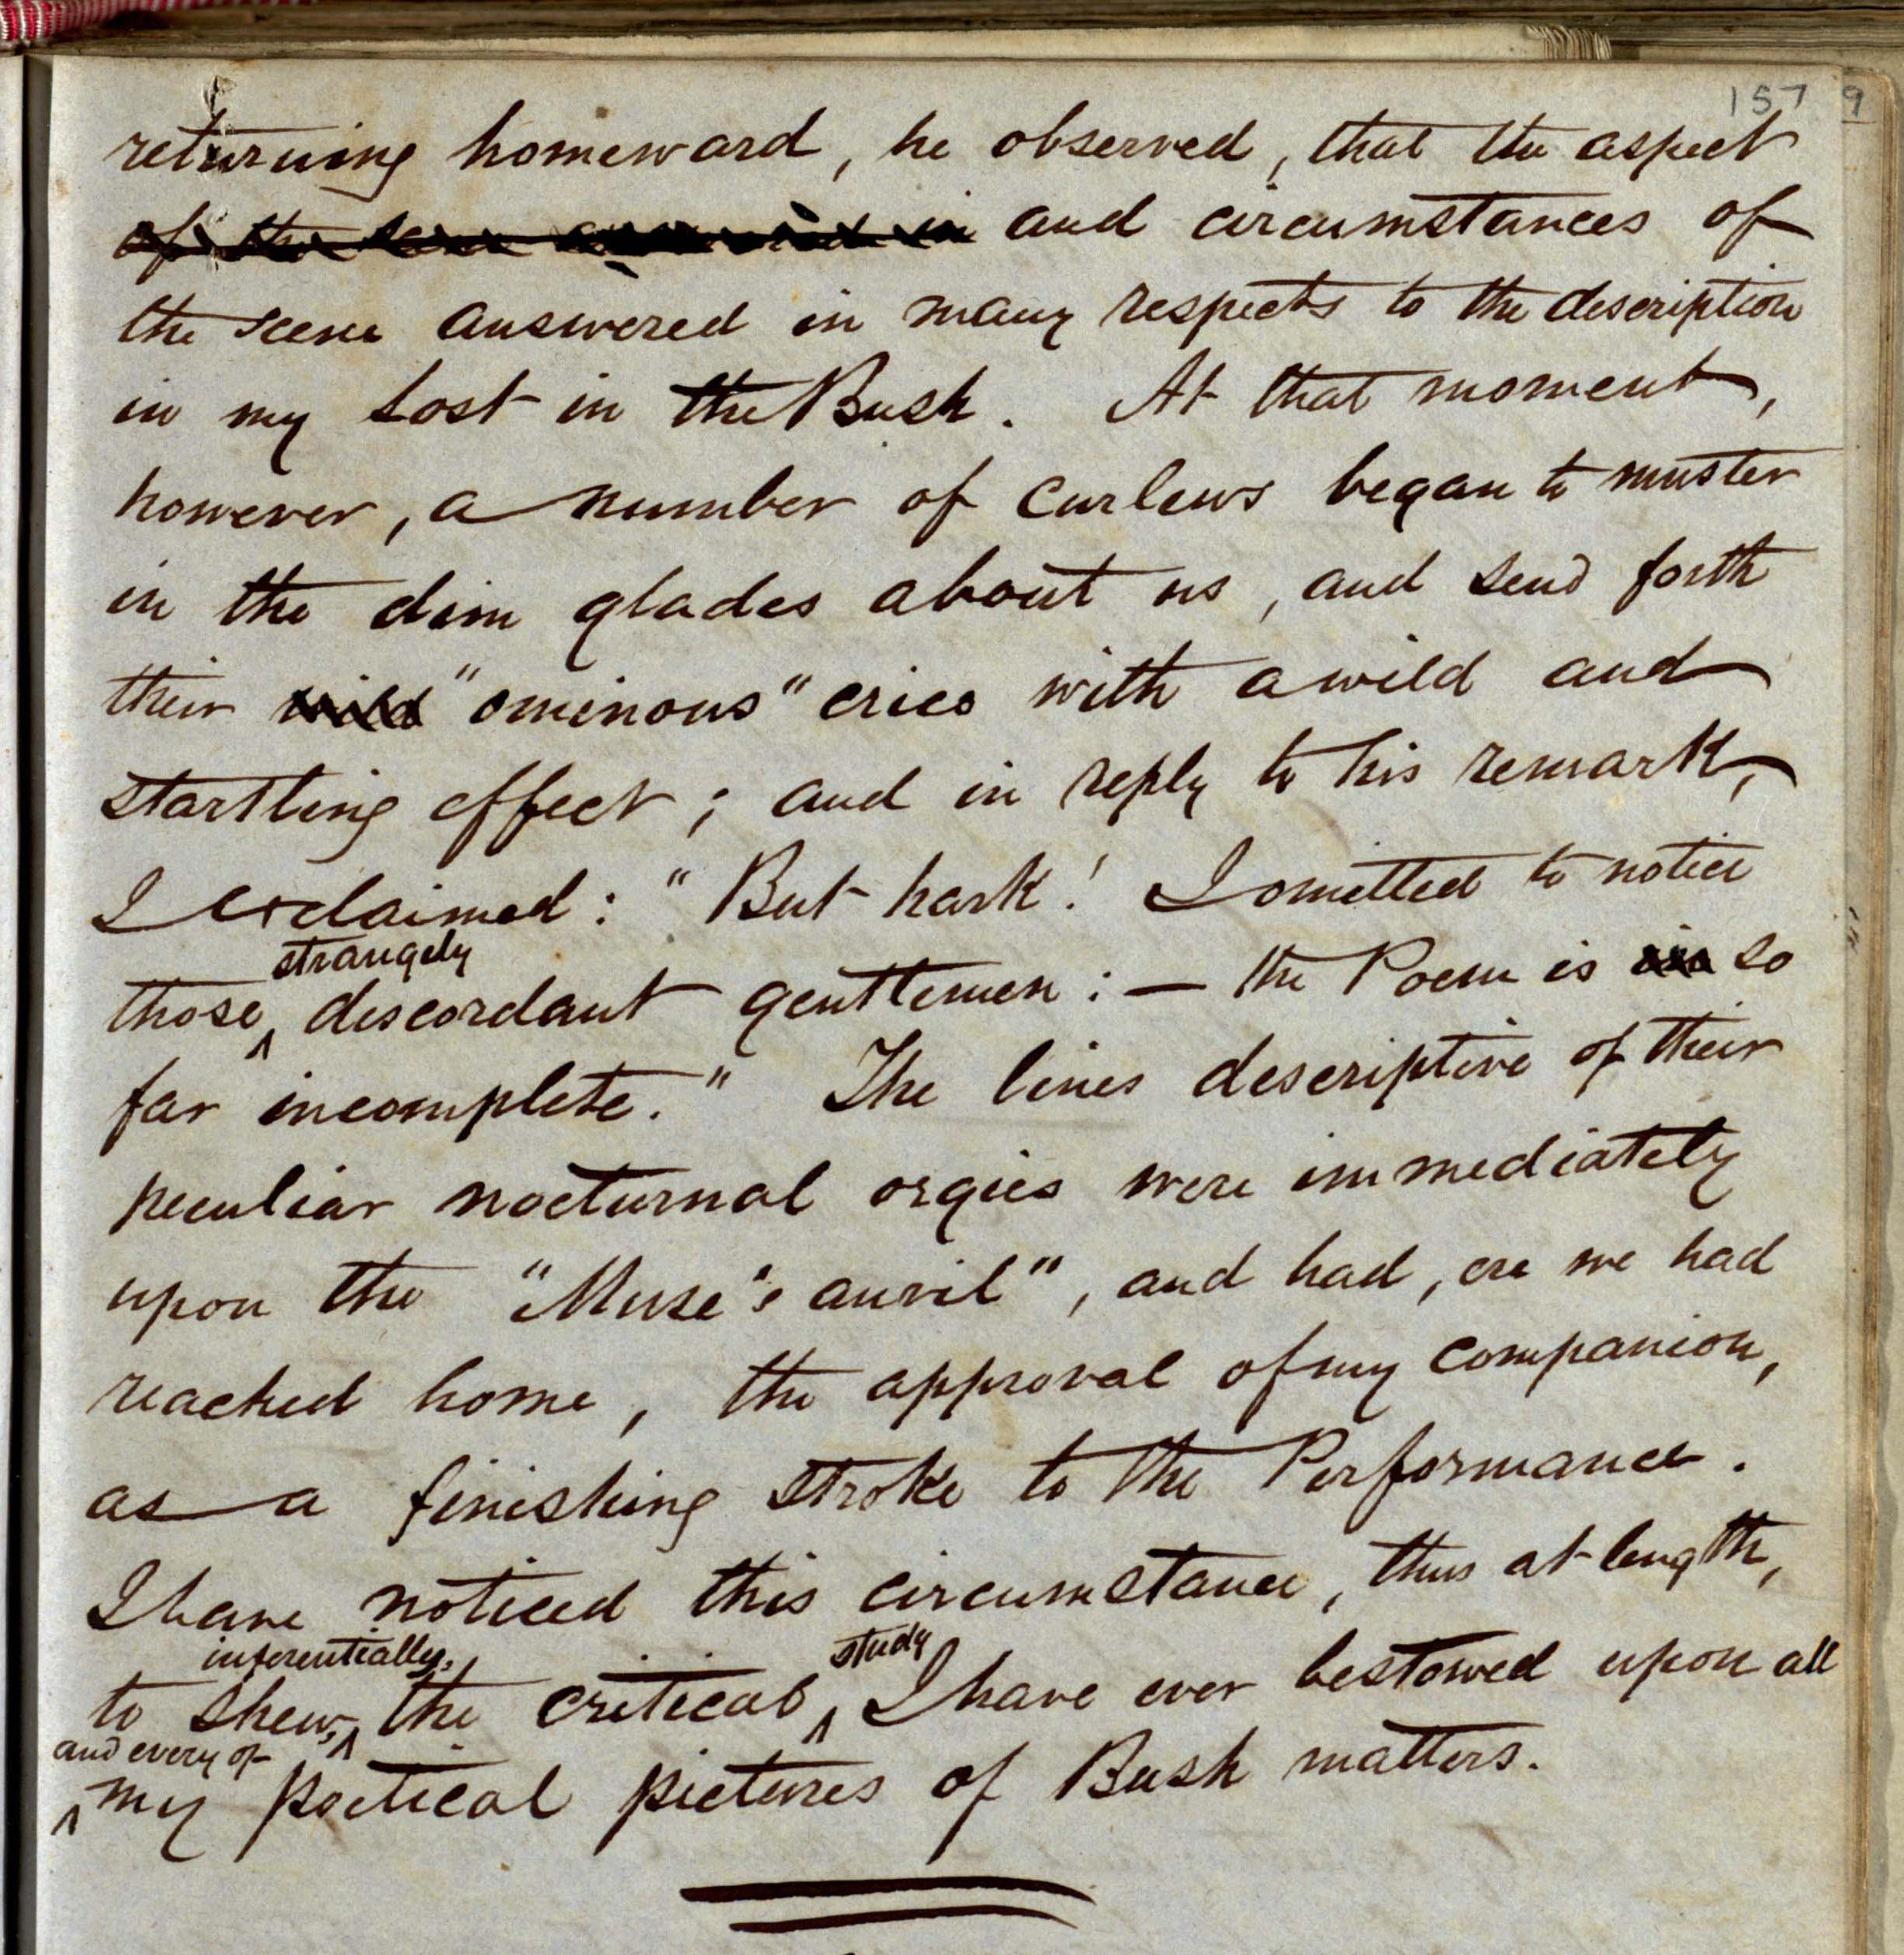 157 9
returning homeward, he observed, that the aspect
of the scene answered in and circumstances of
the scene answered in many respects to the description
in my Lost in the Bush. At that moment,
however, a number of curlews began to muster
in the dim glades about us, and send forth
their wild "ominous" cries with a wild and
startling effect; and in reply to his remark,
I exclaimed: "But hark! I omitted to notice
strangely
those discordant gentlemen: — the Poem is so
far incomplete." The lines descriptive of their
peculiar nocturnal orgies were immediately
upon the "Muse's anvil", and had, ere we had
reached home, the approval of my companion,
as a finishing stroke to the Performance.
I have noticed this circumstance, thus at length,
inferentially, study
to shew, the critical I have ever bestowed upon all
and every of
my poetical pictures of Bush matters.